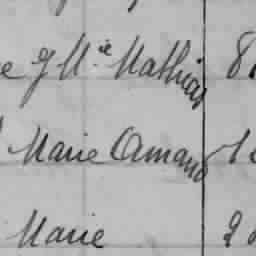 e J M.ie Mathias 8
Marie Amand 1
Marie 2